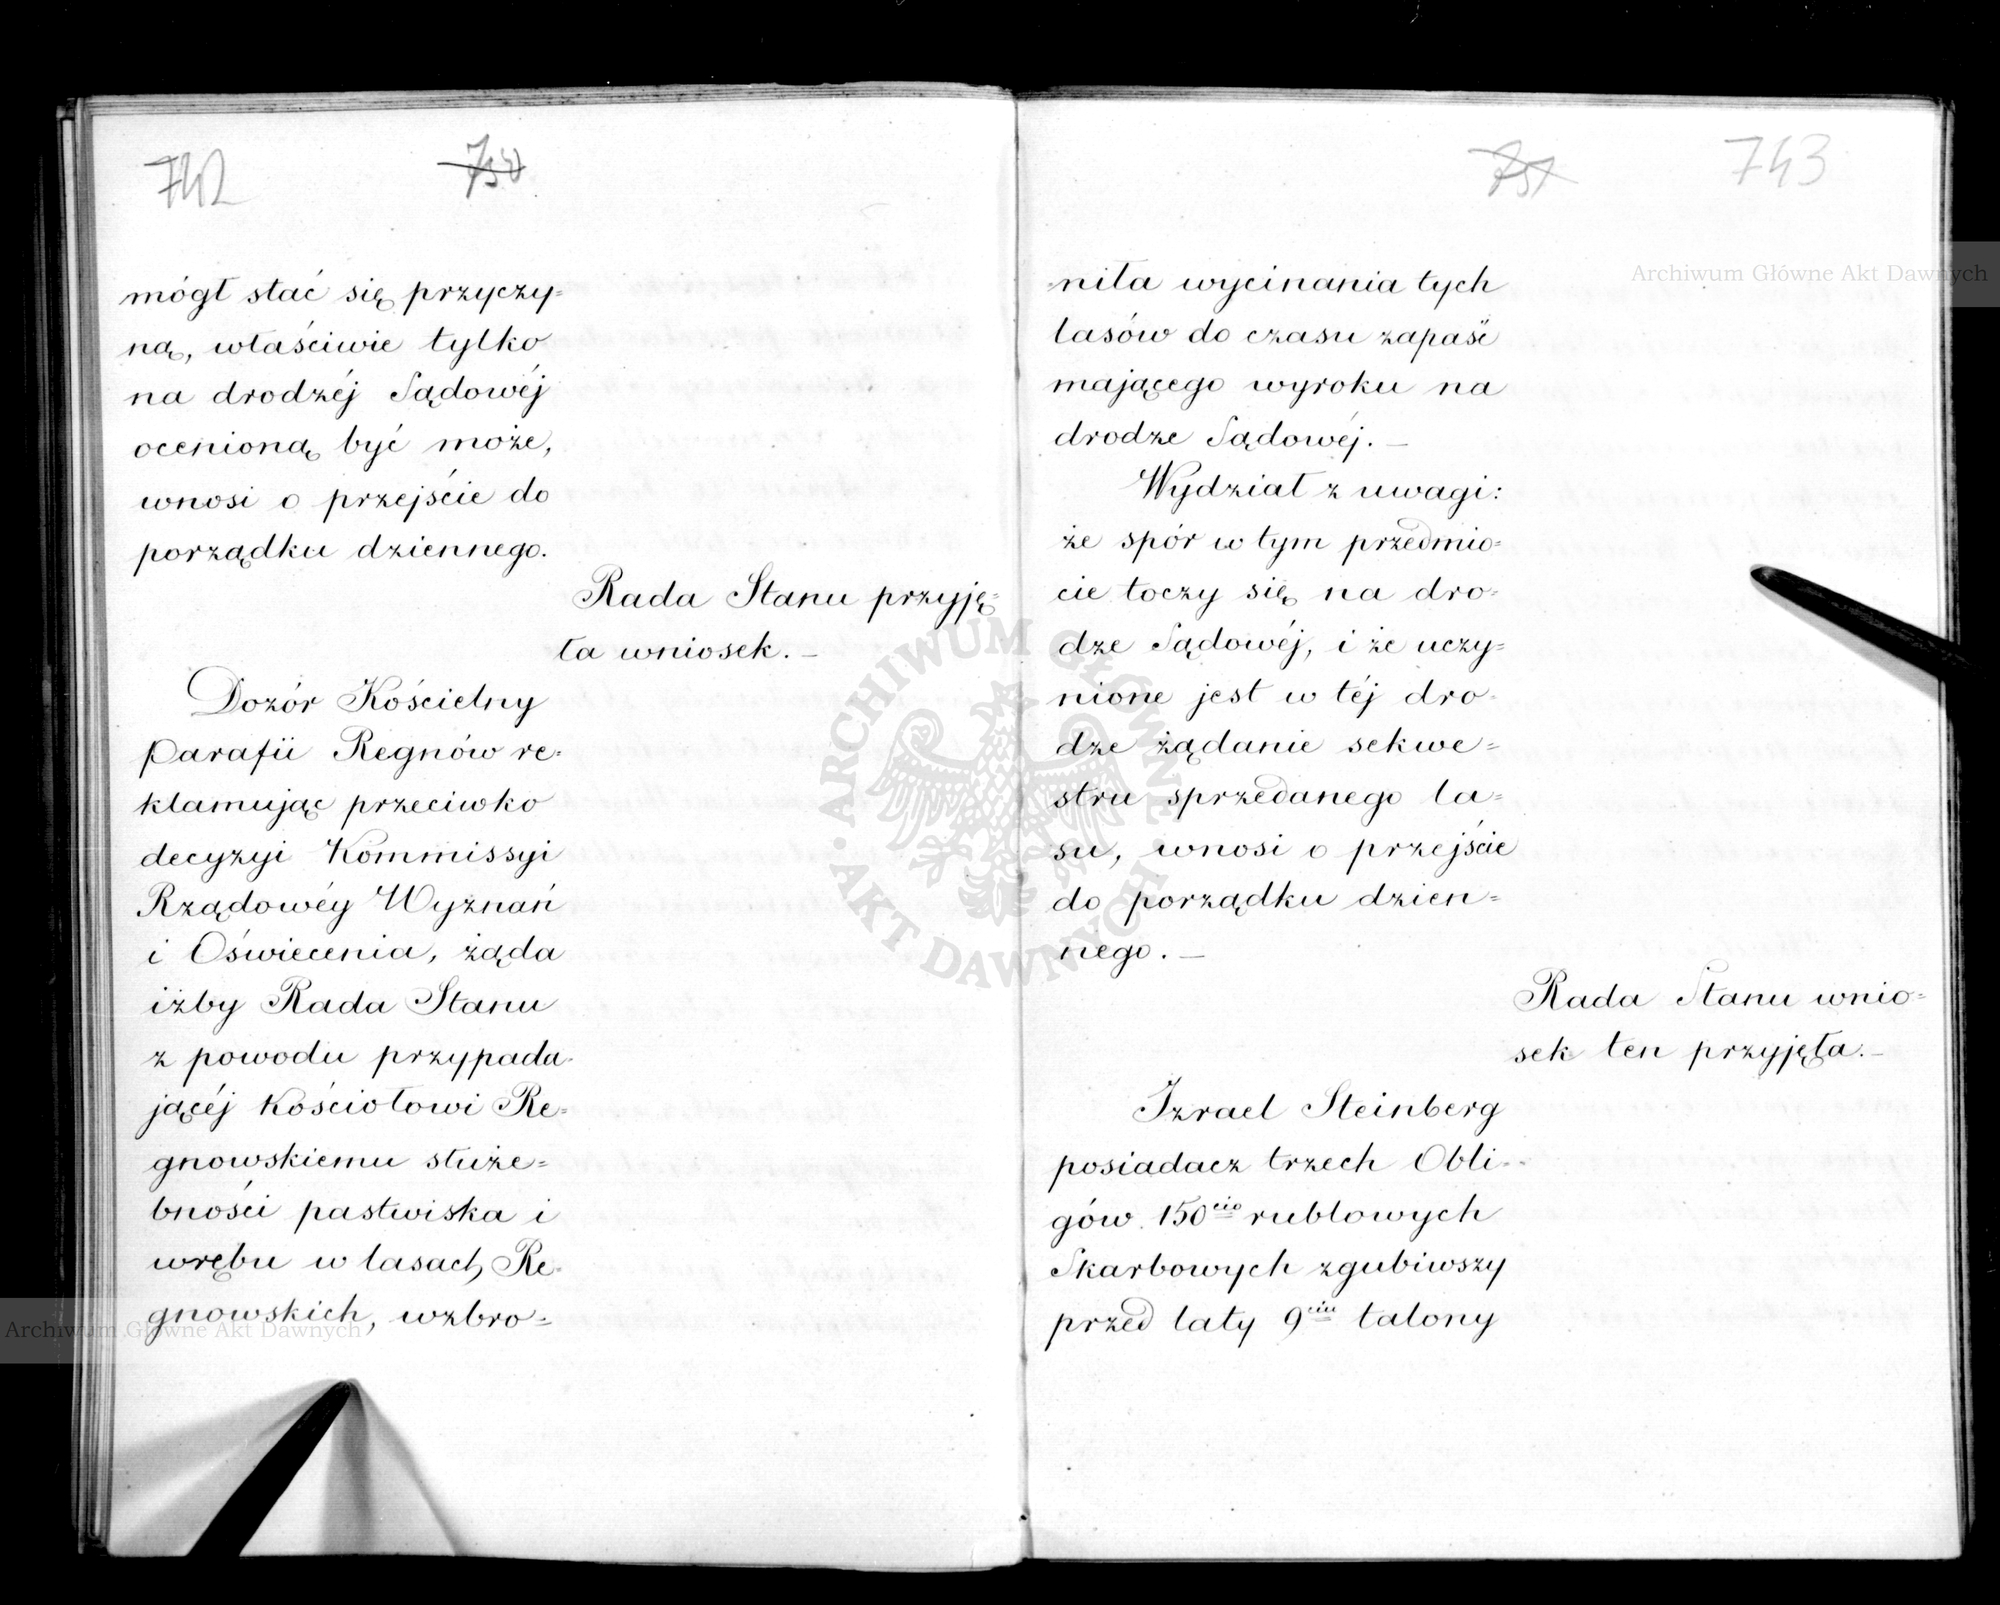 742
750
mógł stać się przyczy=
ną, właściwie tylko
na drodzéj Sądowéj
ocenioną być może,
wnosi o przejście do
porządku dziennego.
Rada Stanu przyję=
ła wniosek. –
Dozór Kościelny
Parafii Regnów re=
klamując przeciwko
decyzyi Kommissyi
Rządowéy Wyznań
i Oświecenia, żąda
iżby Rada Stanu
z powodu przypada-
jącéj Kościołowi Re=
gnowskiemu służe=
bności pastwiska i
wrębu w lasach Re=
gnowskich, wzbro=
751
743
niła wycinania tych
lasów do czasu zapaść
mającego wyroku na
drodze Sądowéj. –
Wydział z uwagi:
że spór w tym przedmio=
cie toczy się na dro=
dze Sądowéj, i że uczy=
nione jest w téj dro=
dze żądanie sekwe=
stru sprzedanego la=
su, wnosi o przejście
do porządku dzien=
nego. –
Rada Stanu wnio=
sek ten przyjęła. –
Izrael Steinberg
posiadacz trzech Obli=
gów 150cio rublowych
Skarbowych zgubiwszy
przed laty 9ciu talony
Archiwum Główne Akt Dawnych
Archiwum Główne Akt Dawnych
ARCHIWUM GŁÓWNE AKT DAWNYCH